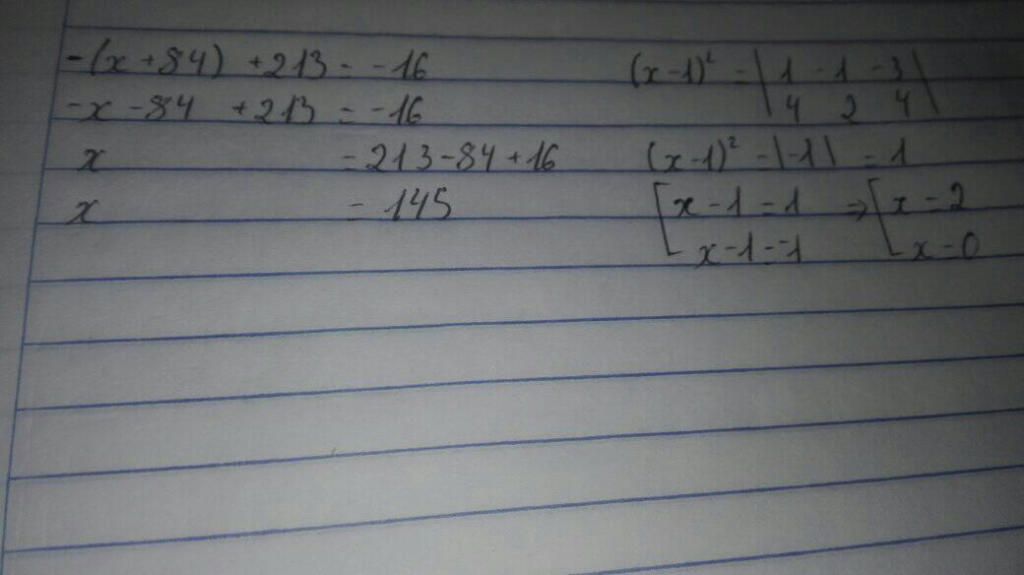 -(x+84) +213 = -16
-x -84 +213 = -16
x = 213-84+16
x = 145
(x-1)² = |1 -1 -3|
4 2 4
(x-1)² = |-1| = 1
[x-1=1 ⇒ [x=2
x-1=-1 x=0